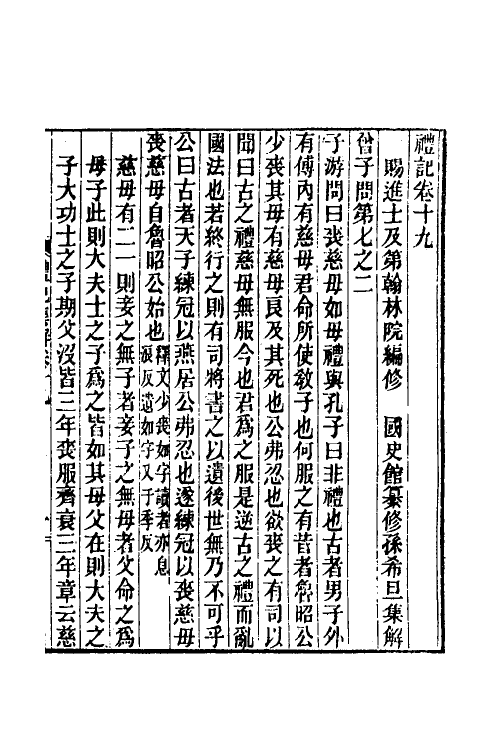 禮記卷十九
賜進士及第翰林院編修 國史館纂修孫希旦集解
曾子問第七之二
子游問曰喪慈母如母禮與孔子曰非禮也古者男子外
有傅內有慈母君命所使教子也何服之有昔者魯昭公
少喪其母有慈母良及其死也公弗忍也欲喪之有司以
聞曰古之禮慈母無服今也君為之服是逆古之禮而亂
國法也若終行之則有司將書之以遺後世無乃不可乎
公曰古者天子練冠以燕居公弗忍也遂練冠以喪慈母
喪慈母自魯昭公始也釋文少喪如字讀者亦息
浪反遺如字又于季反
慈母有二一則妾之無子者妾子之無母者父命之為
母子此則大夫士之子為之皆如其母父在則大夫之
子大功士之子期父沒皆三年喪服齊衰三年章云慈